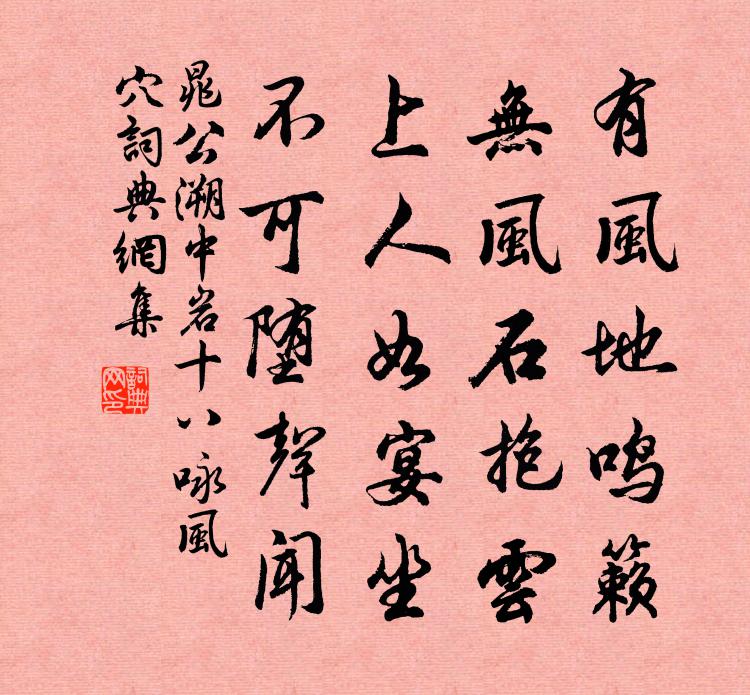 有風地鳴籟
無風石抱雲
上人如宴坐
不可堕聲聞
晁公溯中岩十八咏風
穴詞典網集
詞典
网印